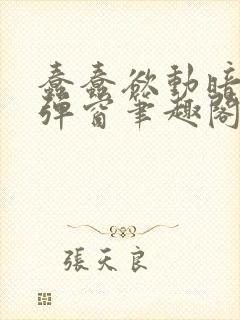 蠢蠢欲動暗
彈窗筆趣閣
張天良